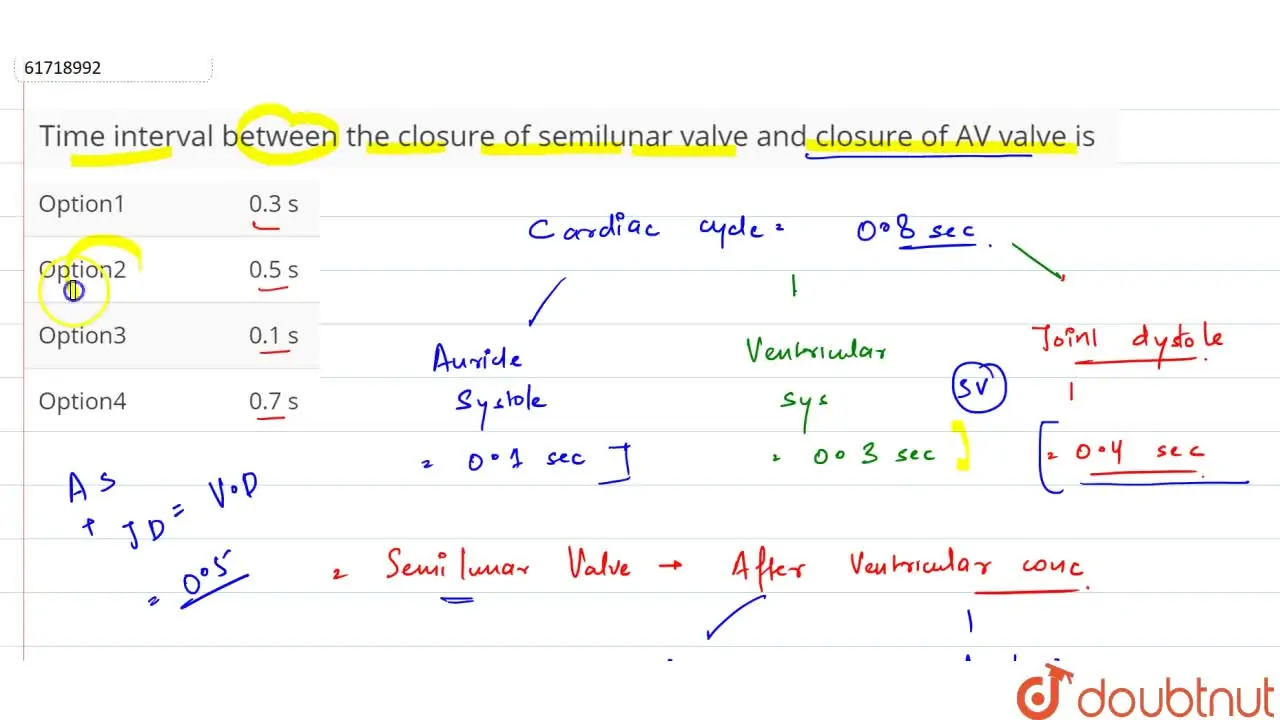 61718992
Time interval between the closure of semilunar valve and closure of AV valve is
Option1 0.3 s
Option2 0.5 s
Option3 0.1 s
Option4 0.7 s
Cardiac cycle = 0.8 sec.
Auricle Systole = 0.1 sec
Ventricular sys = 0.3 sec
SV
Joint dystole = 0.4 sec
AS + JD = V.D
= 0.5
= Semilunar Valve → After Ventricular conc.
doubtnut